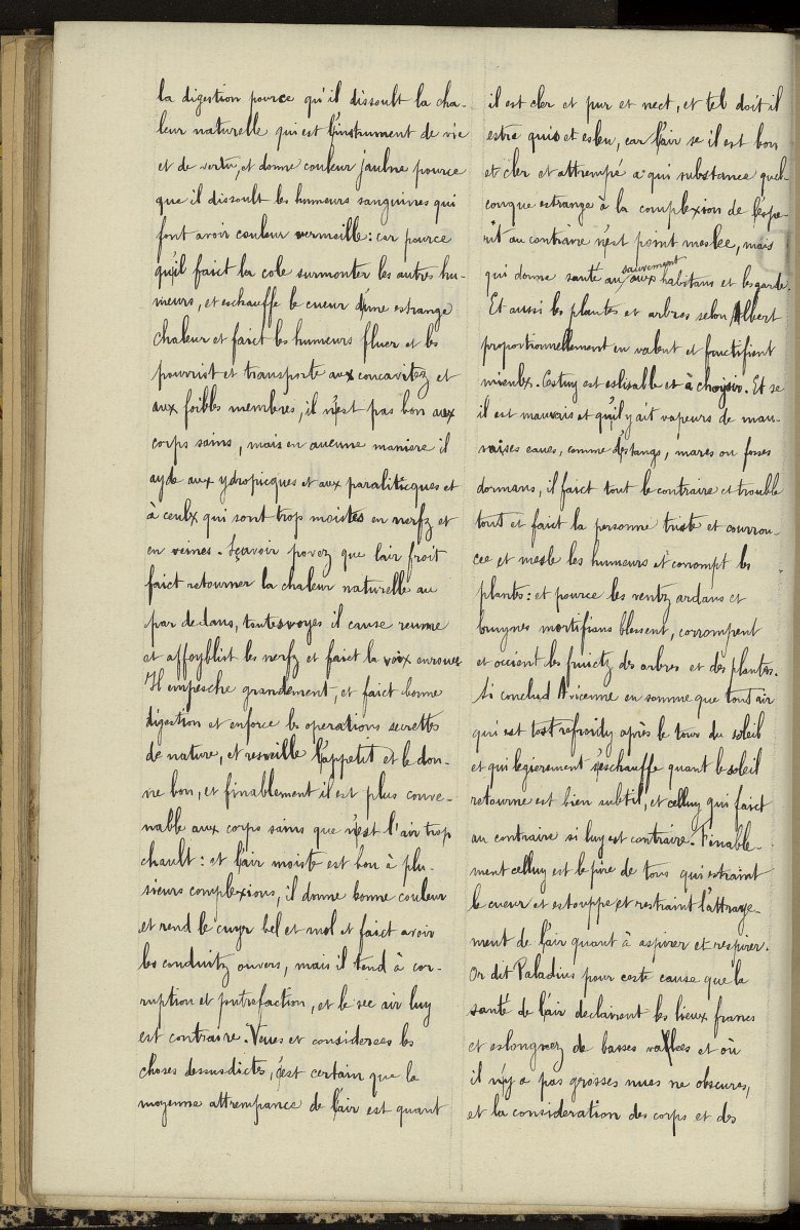 la digestion pource qu'il dissoult la cha-
leur naturelle qui est l'instrument de vie
et de vertu, et donne couleur jaulne pource
que il dissoult les humeurs sanguines qui
font avoir couleur vermeille: car pource
qu'il faict la cole surmonter les autres hu-
meurs, et eschauffe le cueur d'une estrange
chaleur et faict les humeurs fluer et les
pourrist et transporte aux concavitez et
aux foibles membres, il n'est pas bon aux
corps sains, mais en aucune maniere il
ayde aux ydropicques et aux paraliticques et
à ceulx qui sont trop moistes en nerfz et
en veines. Sçavoir povez que l'air froit
faict retourner la chaleur naturelle au
par dedans, toutesvoyes il cause reume
et affoyblist les nerfz et faict la voix enrouee
Il empesche grandement, et faict bonne
digestion et enforce les operations secrettes
de nature, et resveille l'appetit et le don-
ne bon, et finablement il est plus conve-
nable aux corps sains que n'est l'air trop
chault: et l'air moiste est bon à plu-
sieurs complexions, il donne bonne couleur
et rend le cuyr bel et mol et faict avoir
les conduitz ouvers, mais il tend à cor-
ruption et putrefaction, et le sec air luy
est contraire. Veues et considerees les
choses dessusdictes, c'est certain que la
moyenne attrempance de l'air est quant
il est cler et pur et nect, et tel doit il
estre quis et esleu, car l'air se il est bon
et cler et attrempé a qui substance quel-
conque estrange à la complexion de l'espe-
rit au contraire n'est point meslee, mais
qui donne santé au sauvement aux habitans et les garde.
Et aussi les plantes et arbres selon Albert
proportionnellement en valent et fructifient
mieulx. Cestuy est eslisable et à choysir. Et se
il est mauvais et qu'il y ait vapeurs de mau-
vaises eaues, comme d'estangs, mares ou fosses
dormans, il faict tout le contraire et trouble
tout et faict la personne triste et courrou-
cee et mesle les humeurs et corrompt les
plantes: et pource les ventz ardans et
bruynes mortifians blessent, corrompent
et occient les fruictz des arbres et des plantes.
Si conclud Avicenne en somme que tout air
qui est tost refroidy après le tour du soleil
et qui legierement s'eschauffe quant le soleil
retourne est bien subtil, et celluy qui faict
au contraire si luy est contraire. Finable-
ment celluy est le pire de tous qui estraint
le cueur et estouppe et restraint l'attraye-
ment de l'air quant à aspirer et respirer.
Or dit Paladius pour ceste cause que la
santé de l'air declairent les lieux francs
et eslongnez de basses vallees et où
il n'y a pas grosses nues ne obscures,
et la consideration des corps et des